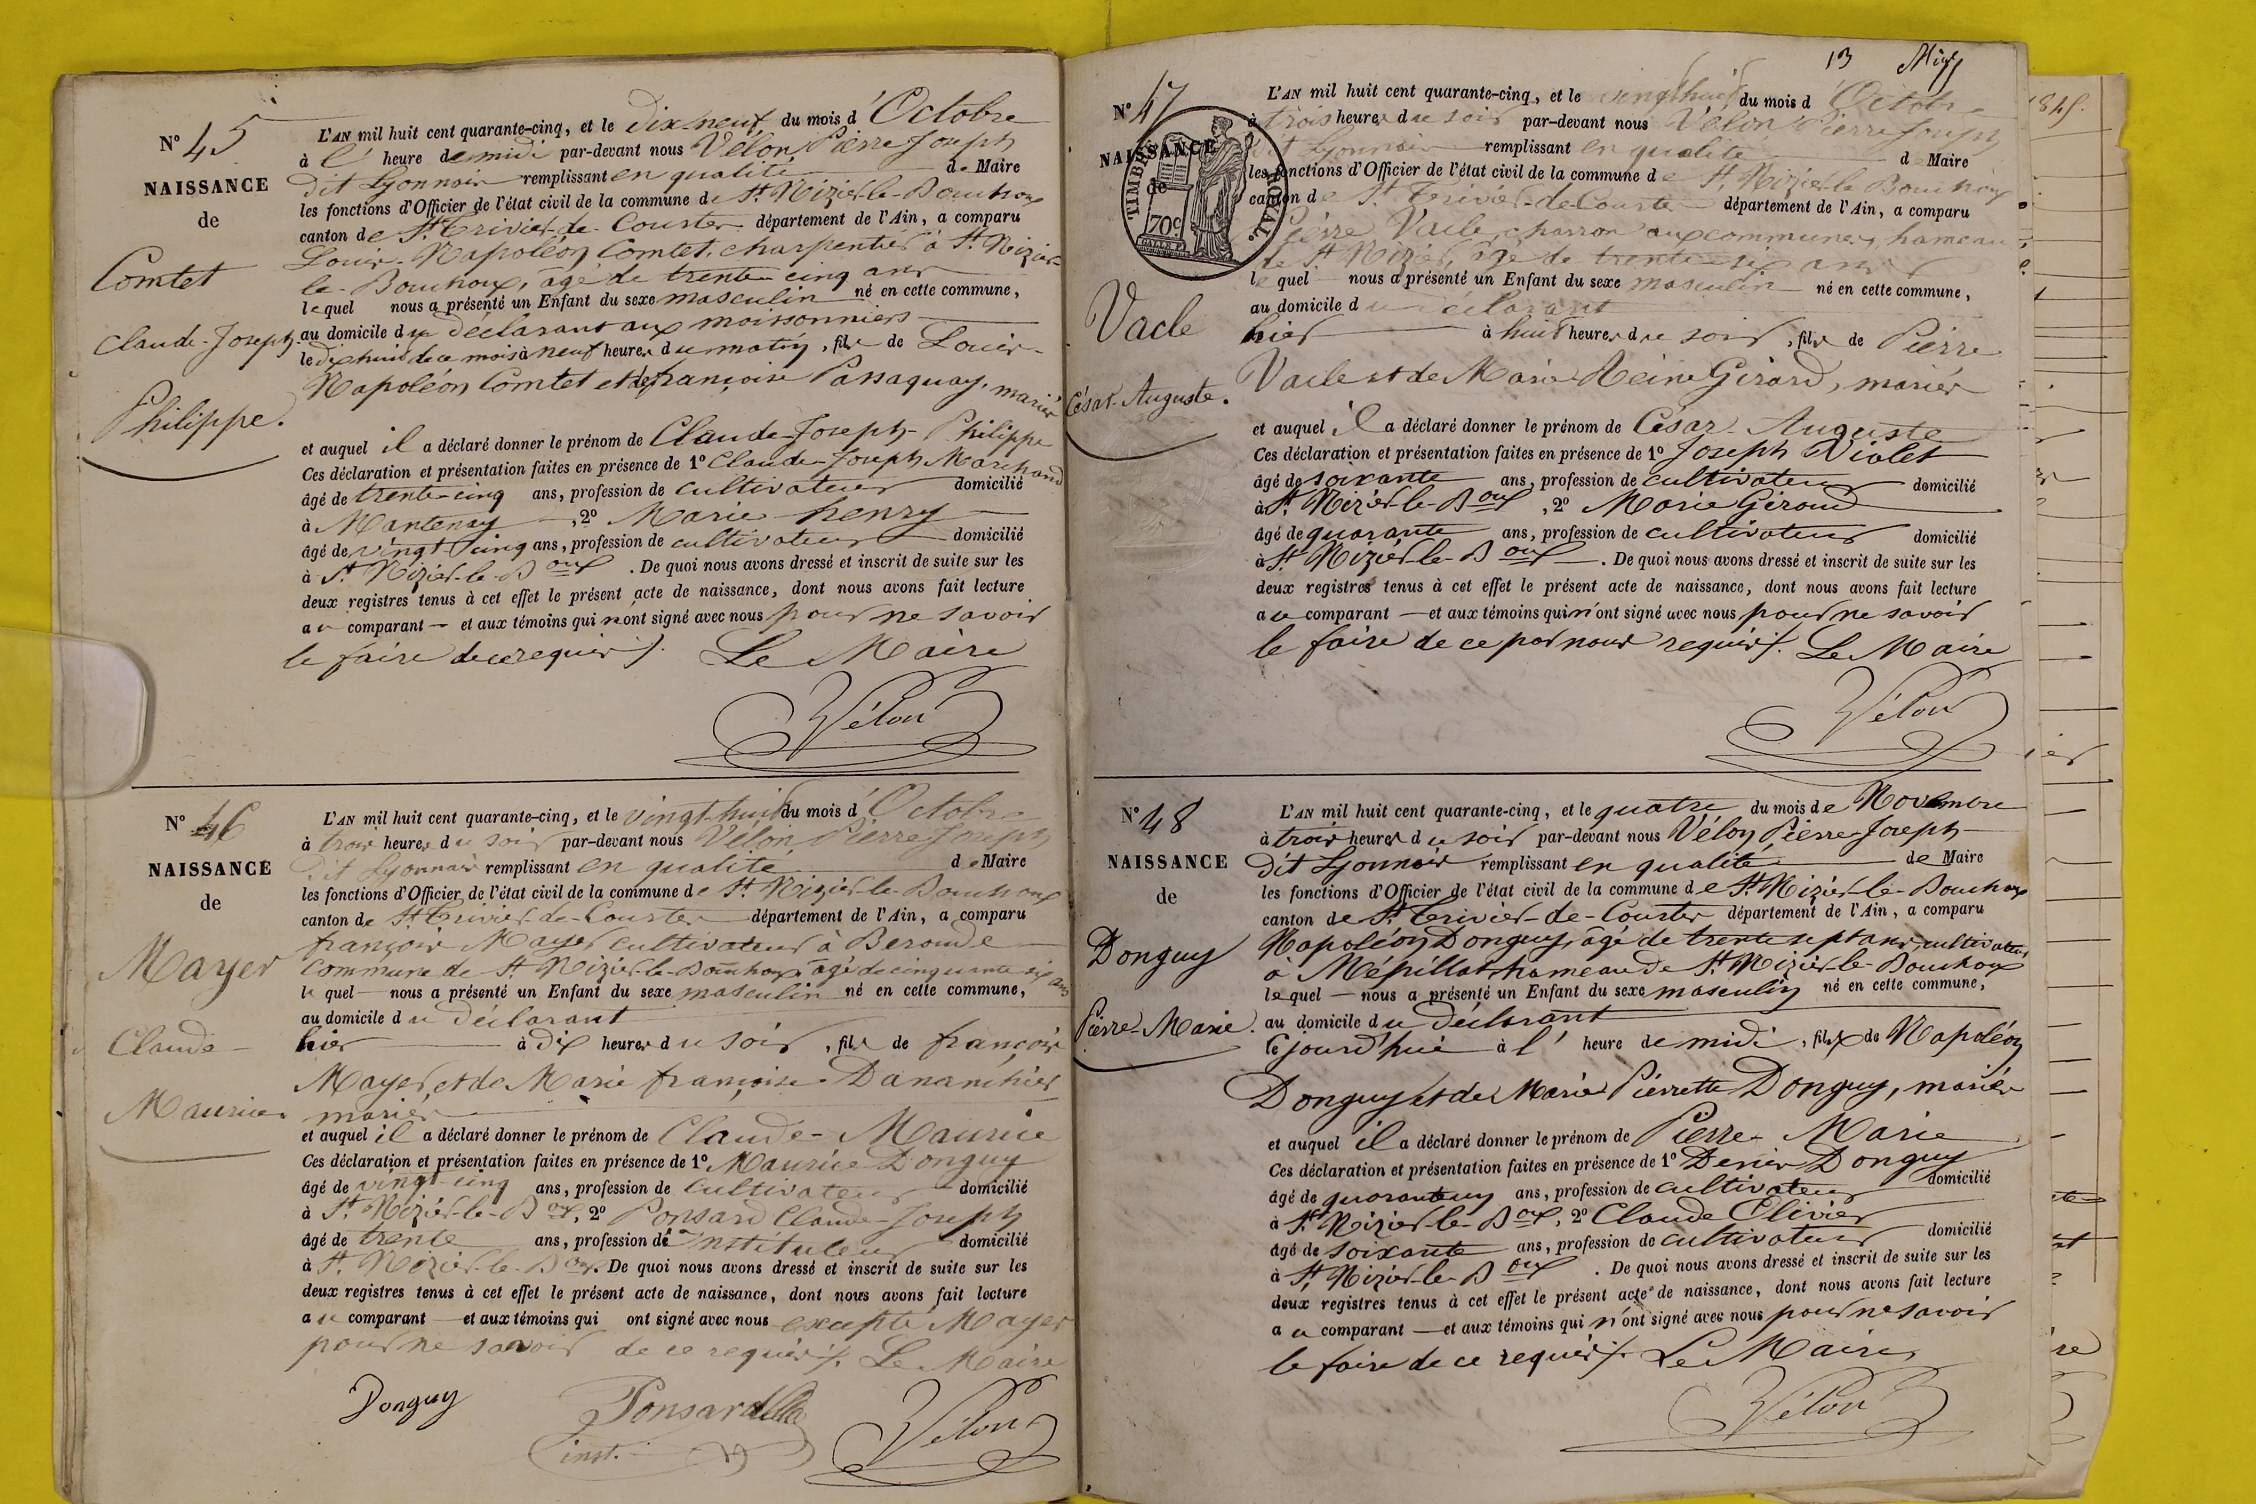 N° 45
NAISSANCE
de
Comtet
Claude-Joseph-
Philippe.
L'AN mil huit cent quarante-cinq, et le dix-neuf du mois d'Octobre
à l' heure de midi par-devant nous Vélon Pierre Joseph
dit Lyonnais remplissant en qualité de Maire
les fonctions d'Officier de l'état civil de la commune de St. Nizier-le-Bouchoux
canton de St. Trivier-de-Courtes département de l'Ain, a comparu
Louis-Napoléon Comtet, charpentier à St. Nizier-
le-Bouchoux, âgé de trente-cinq ans
lequel nous a présenté un Enfant du sexe masculin né en cette commune,
au domicile du déclarant aux moissonniers
le dix huit de ce mois à neuf heures du matin, fils de Louis-
Napoléon Comtet et de françoise Passaquay, mariés
et auquel il a déclaré donner le prénom de Claude-Joseph-Philippe
Ces déclaration et présentation faites en présence de 1° Claude-Joseph Marchand
âgé de trente-cinq ans, profession de cultivateur domicilié
à Mantenay, 2° Marie henry
âgé de vingt-cinq ans, profession de cultivateur domicilié
à St. Nizier-le-Boux. De quoi nous avons dressé et inscrit de suite sur les
deux registres tenus à cet effet le présent acte de naissance, dont nous avons fait lecture
au comparant — et aux témoins qui n'ont signé avec nous pour ne savoir
le faire de ce requis ./. Le Maire
Vélon
N° 46
NAISSANCE
de
Mayer
Claude-
Maurice
L'AN mil huit cent quarante-cinq, et le vingt-huit du mois d'Octobre
à trois heures du soir par-devant nous Vélon Pierre Joseph
dit Lyonnais remplissant en qualité de Maire
les fonctions d'Officier de l'état civil de la commune de St. Nizier-le-Bouchoux
canton de St. Trivier-de-Courtes département de l'Ain, a comparu
françois Mayer cultivateur à Beroude
commune de St. Nizier-le-Bouchoux âgé de cinquante six ans
lequel — nous a présenté un Enfant du sexe masculin né en cette commune,
au domicile du déclarant
hier à dix heures du soir, fils de françois
Mayer, et de Marie françoise Dananchier
mariés
et auquel il a déclaré donner le prénom de Claude-Maurice
Ces déclaration et présentation faites en présence de 1° Maurice Donguy
âgé de vingt-cinq ans, profession de cultivateur domicilié
à St. Nizier-le-Boux, 2° Ponsard Claude-Joseph
âgé de trente ans, profession de instituteur domicilié
à St. Nizier-le-Boux. De quoi nous avons dressé et inscrit de suite sur les
deux registres tenus à cet effet le présent acte de naissance, dont nous avons fait lecture
au comparant — et aux témoins qui ont signé avec nous excepté Mayer
pour ne savoir de ce requis ./. Le Maire
Donguy Ponsard Vélon
inst.
13
N° 47
NAISSANCE
de
TIMBRE ROYAL.
70c
Vacle
César-Auguste.
L'AN mil huit cent quarante-cinq, et le vingt huit du mois d'Octobre
à trois heures du soir par-devant nous Vélon Pierre Joseph
dit Lyonnais remplissant en qualité d Maire
les fonctions d'Officier de l'état civil de la commune de St. Nizier-le-Bouchoux
canton de St. Trivier-de-Courtes département de l'Ain, a comparu
Pierre Vacle, charron aux communes, hameau
de St. Nizier, âgé de trente-six ans
lequel nous a présenté un Enfant du sexe masculin né en cette commune,
au domicile du déclarant
hier à huit heures du soir, fils de Pierre
Vacle et de Marie Reine Girard, mariés
et auquel il a déclaré donner le prénom de César-Auguste
Ces déclaration et présentation faites en présence de 1° Joseph Violet
âgé de soixante ans, profession de cultivateur domicilié
à St. Nizier-le-Boux, 2° Marie Giroud
âgé de quarante ans, profession de cultivateur domicilié
à St. Nizier-le-Boux. De quoi nous avons dressé et inscrit de suite sur les
deux registres tenus à cet effet le présent acte de naissance, dont nous avons fait lecture
au comparant — et aux témoins qui n'ont signé avec nous pour ne savoir
le faire de ce par nous requis ./. Le Maire
Vélon
N° 48
NAISSANCE
de
Donguy
Pierre-Marie.
L'AN mil huit cent quarante-cinq, et le quatre du mois de Novembre
à trois heures du soir par-devant nous Vélon Pierre-Joseph
dit Lyonnais remplissant en qualité de Maire
les fonctions d'Officier de l'état civil de la commune de St. Nizier-le-Bouchoux
canton de St. Trivier-de-Courtes département de l'Ain, a comparu
Napoléon Donguy, âgé de trente sept ans, cultivateur
à Mépillat hameau de St. Nizier-le-Bouchoux
lequel — nous a présenté un Enfant du sexe masculin né en cette commune,
au domicile du déclarant
cejourd'hui à l' heure de midi, fils de Napoléon
Donguy et de Marie Pierrette Donguy, mariés
et auquel il a déclaré donner le prénom de Pierre-Marie
Ces déclaration et présentation faites en présence de 1° Denis Donguy
âgé de quarante un ans, profession de cultivateur domicilié
à St. Nizier-le-Boux, 2° Claude Clivier
âgé de soixante ans, profession de cultivateur domicilié
à St. Nizier-le-Boux. De quoi nous avons dressé et inscrit de suite sur les
deux registres tenus à cet effet le présent acte de naissance, dont nous avons fait lecture
au comparant — et aux témoins qui n'ont signé avec nous pour ne savoir
le faire de ce requis ./. Le Maire,
Vélon
1845.